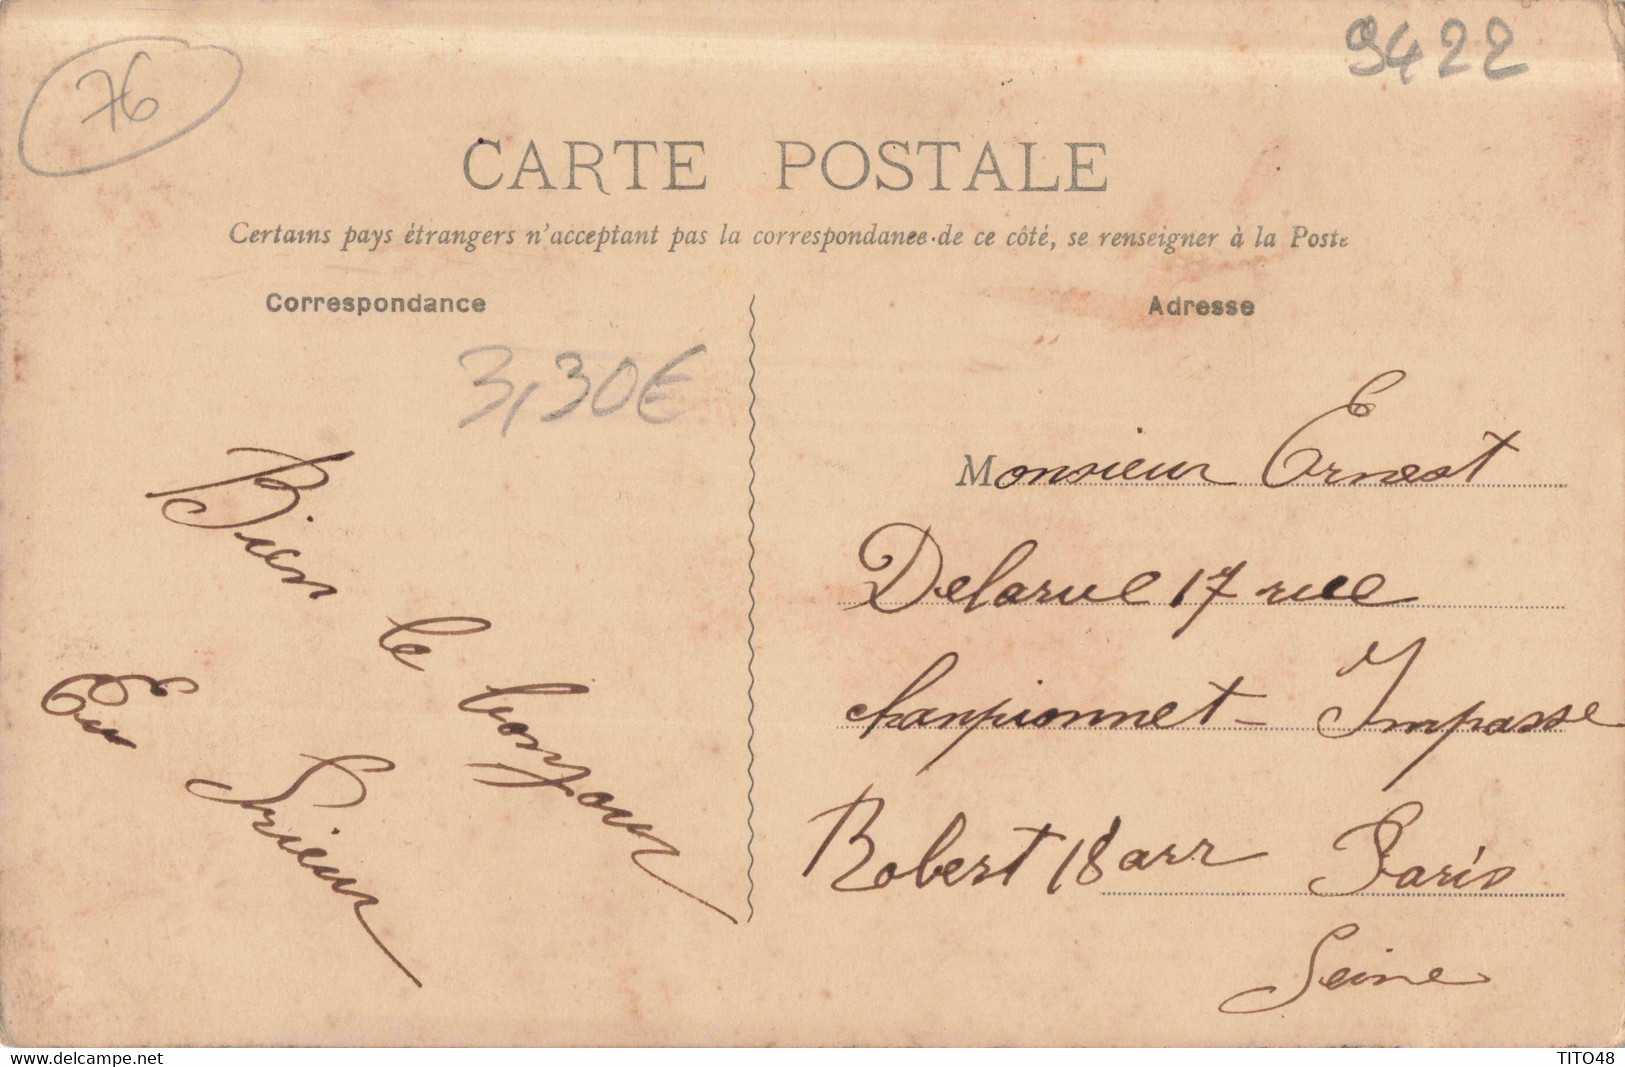 76
9422
CARTE POSTALE
Certains pays étrangers n'acceptant pas la correspondance de ce côté, se renseigner à la Poste
Correspondance
Adresse
3,30€
Bien le bonjour
Eu
Monsieur Ernest
Delarue 17 rue
championnet - Impasse
Robert 18 arr Paris
Seine
delcampe.net
TITO48